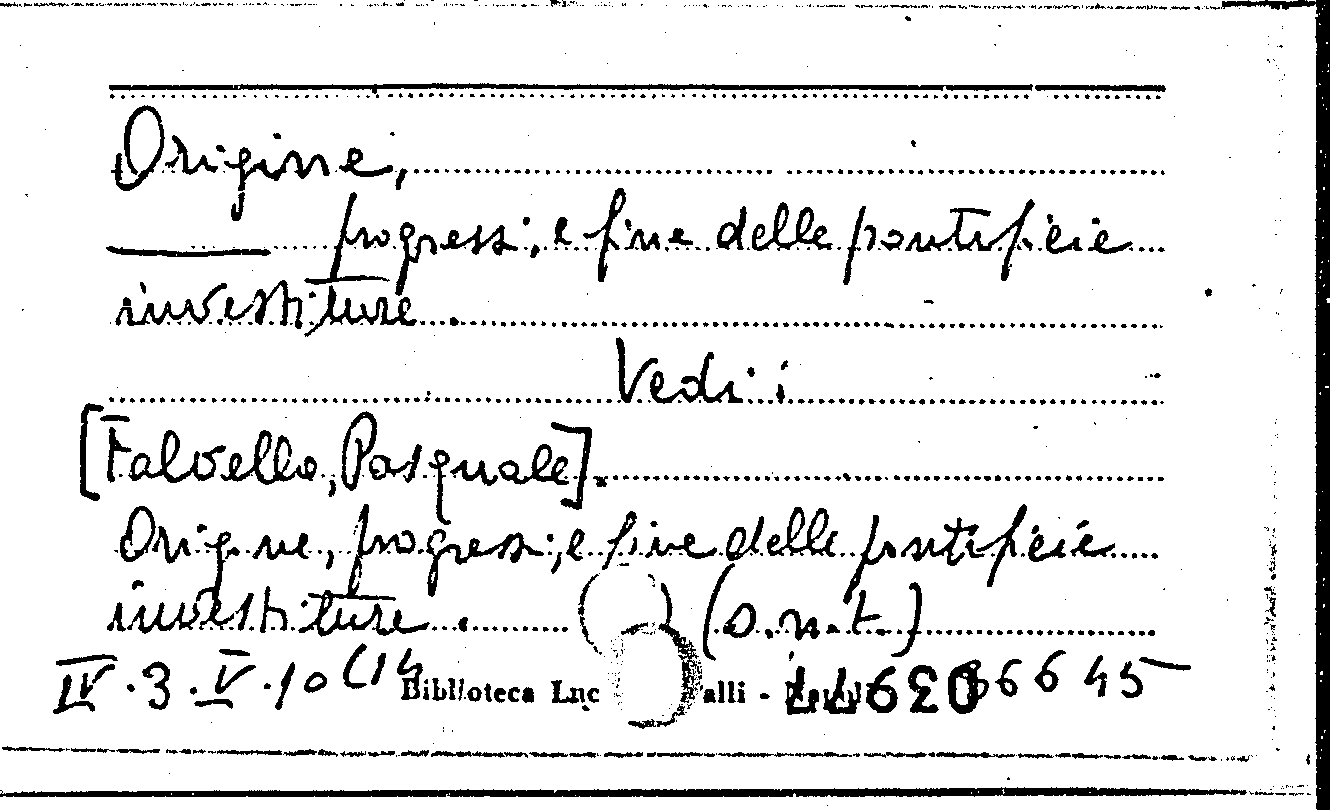 Origine,
progressi, e fine delle pontificie
investiture.
Vedi:
[Falvello, Pasquale].
Origine, progressi, e fine delle pontificie
investiture. (s.n.t.)
IV.3.V.10(14 Biblioteca Luc alli - 6645